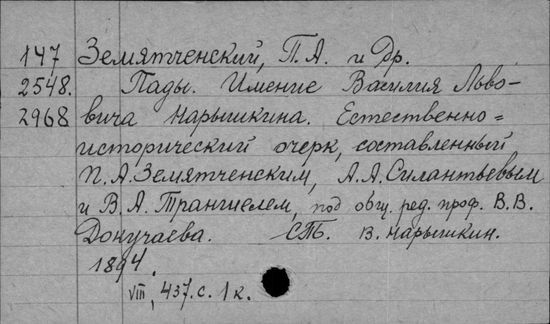 147 Земятченский, П. А. и др.
2548. Пады. Имение Василия Льво-
2968 вича Нарышкина. Естественно=
исторический очерк, составленный
П. А. Земятченским, А. А. Силантьевым
и В. А. Траншелем, под общ. ред. проф. В. В.
Докучаева. СТБ. В. Нарышкин.
1894.
VIII, 437. с. 1 к.